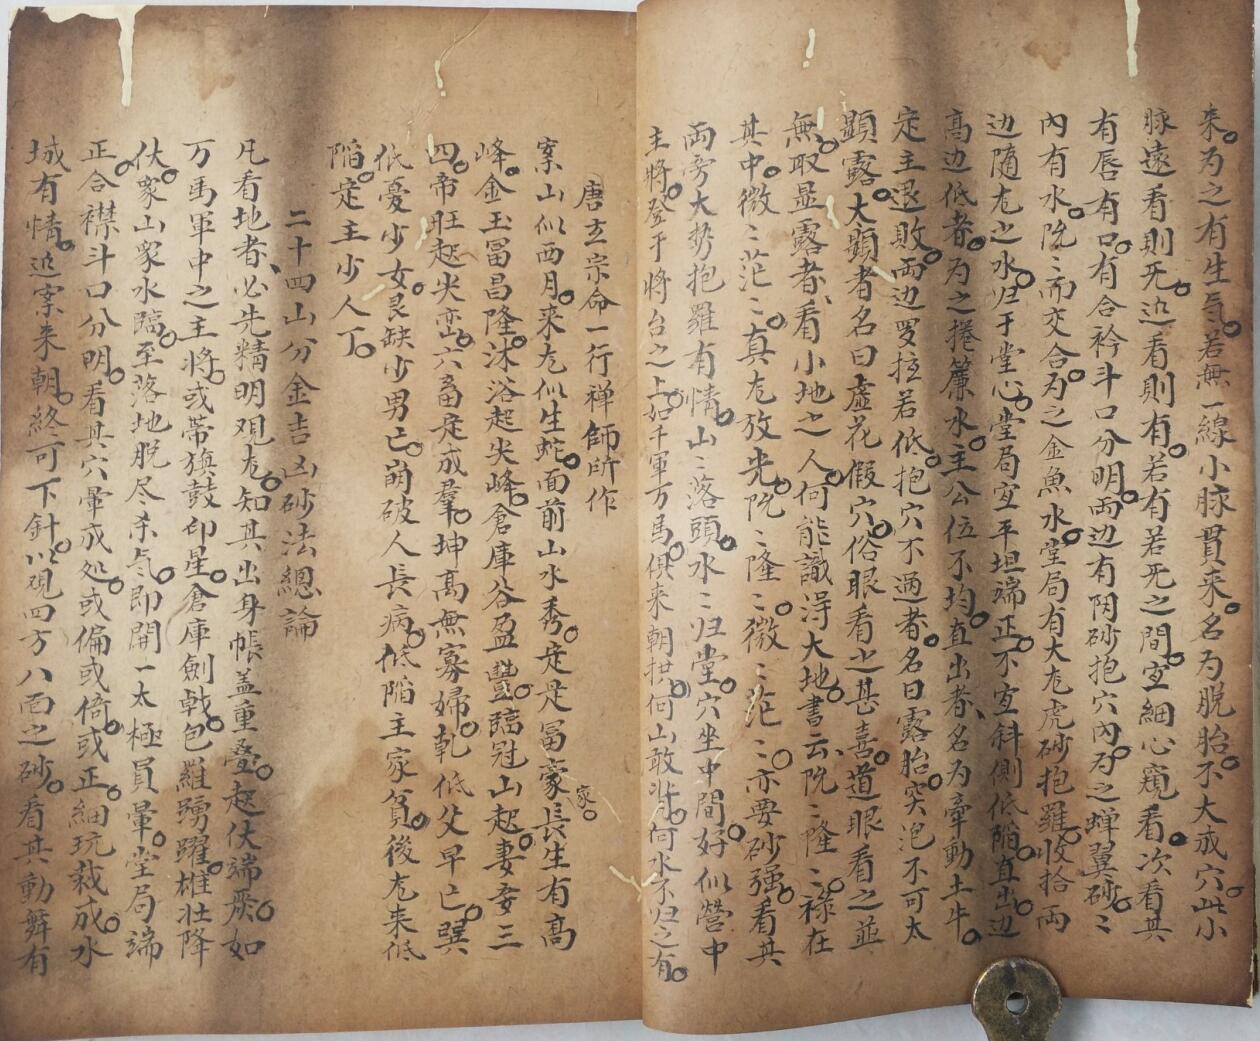 来。为之有生氣。若無一線小脉貫来。名为脱胎。不大成穴。此小
脉遠看則无。近看則有。若有若无之間。宜細心窺看。次看其
有唇有口。有合衿斗口分明。兩边有阴砂抱穴內。为之蟬翼砂。〻
內有水。阮〻而交合。为之金魚水。堂局有大龙虎砂抱羅。收拾両
边随龙之水。归于堂心。堂局宜平坦端正。不宜斜側低陷。直出边
高边低者。为之捲簾水。主公位不均。直出者、名为牽動土牛。
定主退败。両边罗拄若低。抱穴不過者。名曰露胎。突泡不可太
顯露。大顯者名曰虛花假穴。俗眼看之甚喜。道眼看之並
無。取显露者、看小地之人。何能識淂大地。書云。阮〻隆〻。祿在
其中。微〻茫〻。真龙放光。阮〻隆〻。微〻茫〻。亦要砂强。看其
両旁大势抱羅有情。山〻落頭。水〻归堂。穴坐中間。好似營中
主將。登于將台之上。如千軍万馬。俱来朝拱。何山敢壮。何水不归之有。
唐玄宗命一行禅師所作
案山似西月。来龙似生蛇。面前山水秀。定是冨豪家。長生有高
峰。金玉冨昌隆。沐浴起尖峰。倉庫谷盈豐。臨冠山起。妻妾三
四。帝旺起尖峦。六畜定成羣。坤高無寡婦。乾低父早亡。巽
低憂少女。艮缺少男亡。崩破人長病。低陷主家貧。後龙来低
陷。定主少人丁。
二十四山分金吉凶砂法總論
凡看地者、必先精明观龙。知其出身帳盖重叠。起伏端严。如
万馬軍中之主將。或帶旗鼓印星。倉庫劍戟。包羅踴躍。雄壮降
伏。众山众水臨。至落地脱尽杀氣。即開一太極員暈。堂局端
正。合襟斗口分明。看其穴暈成处。或偏或倚。或正。細玩裁成。水
城有情。近案来朝。終可下針。以观四方八面之砂。看其動舞有